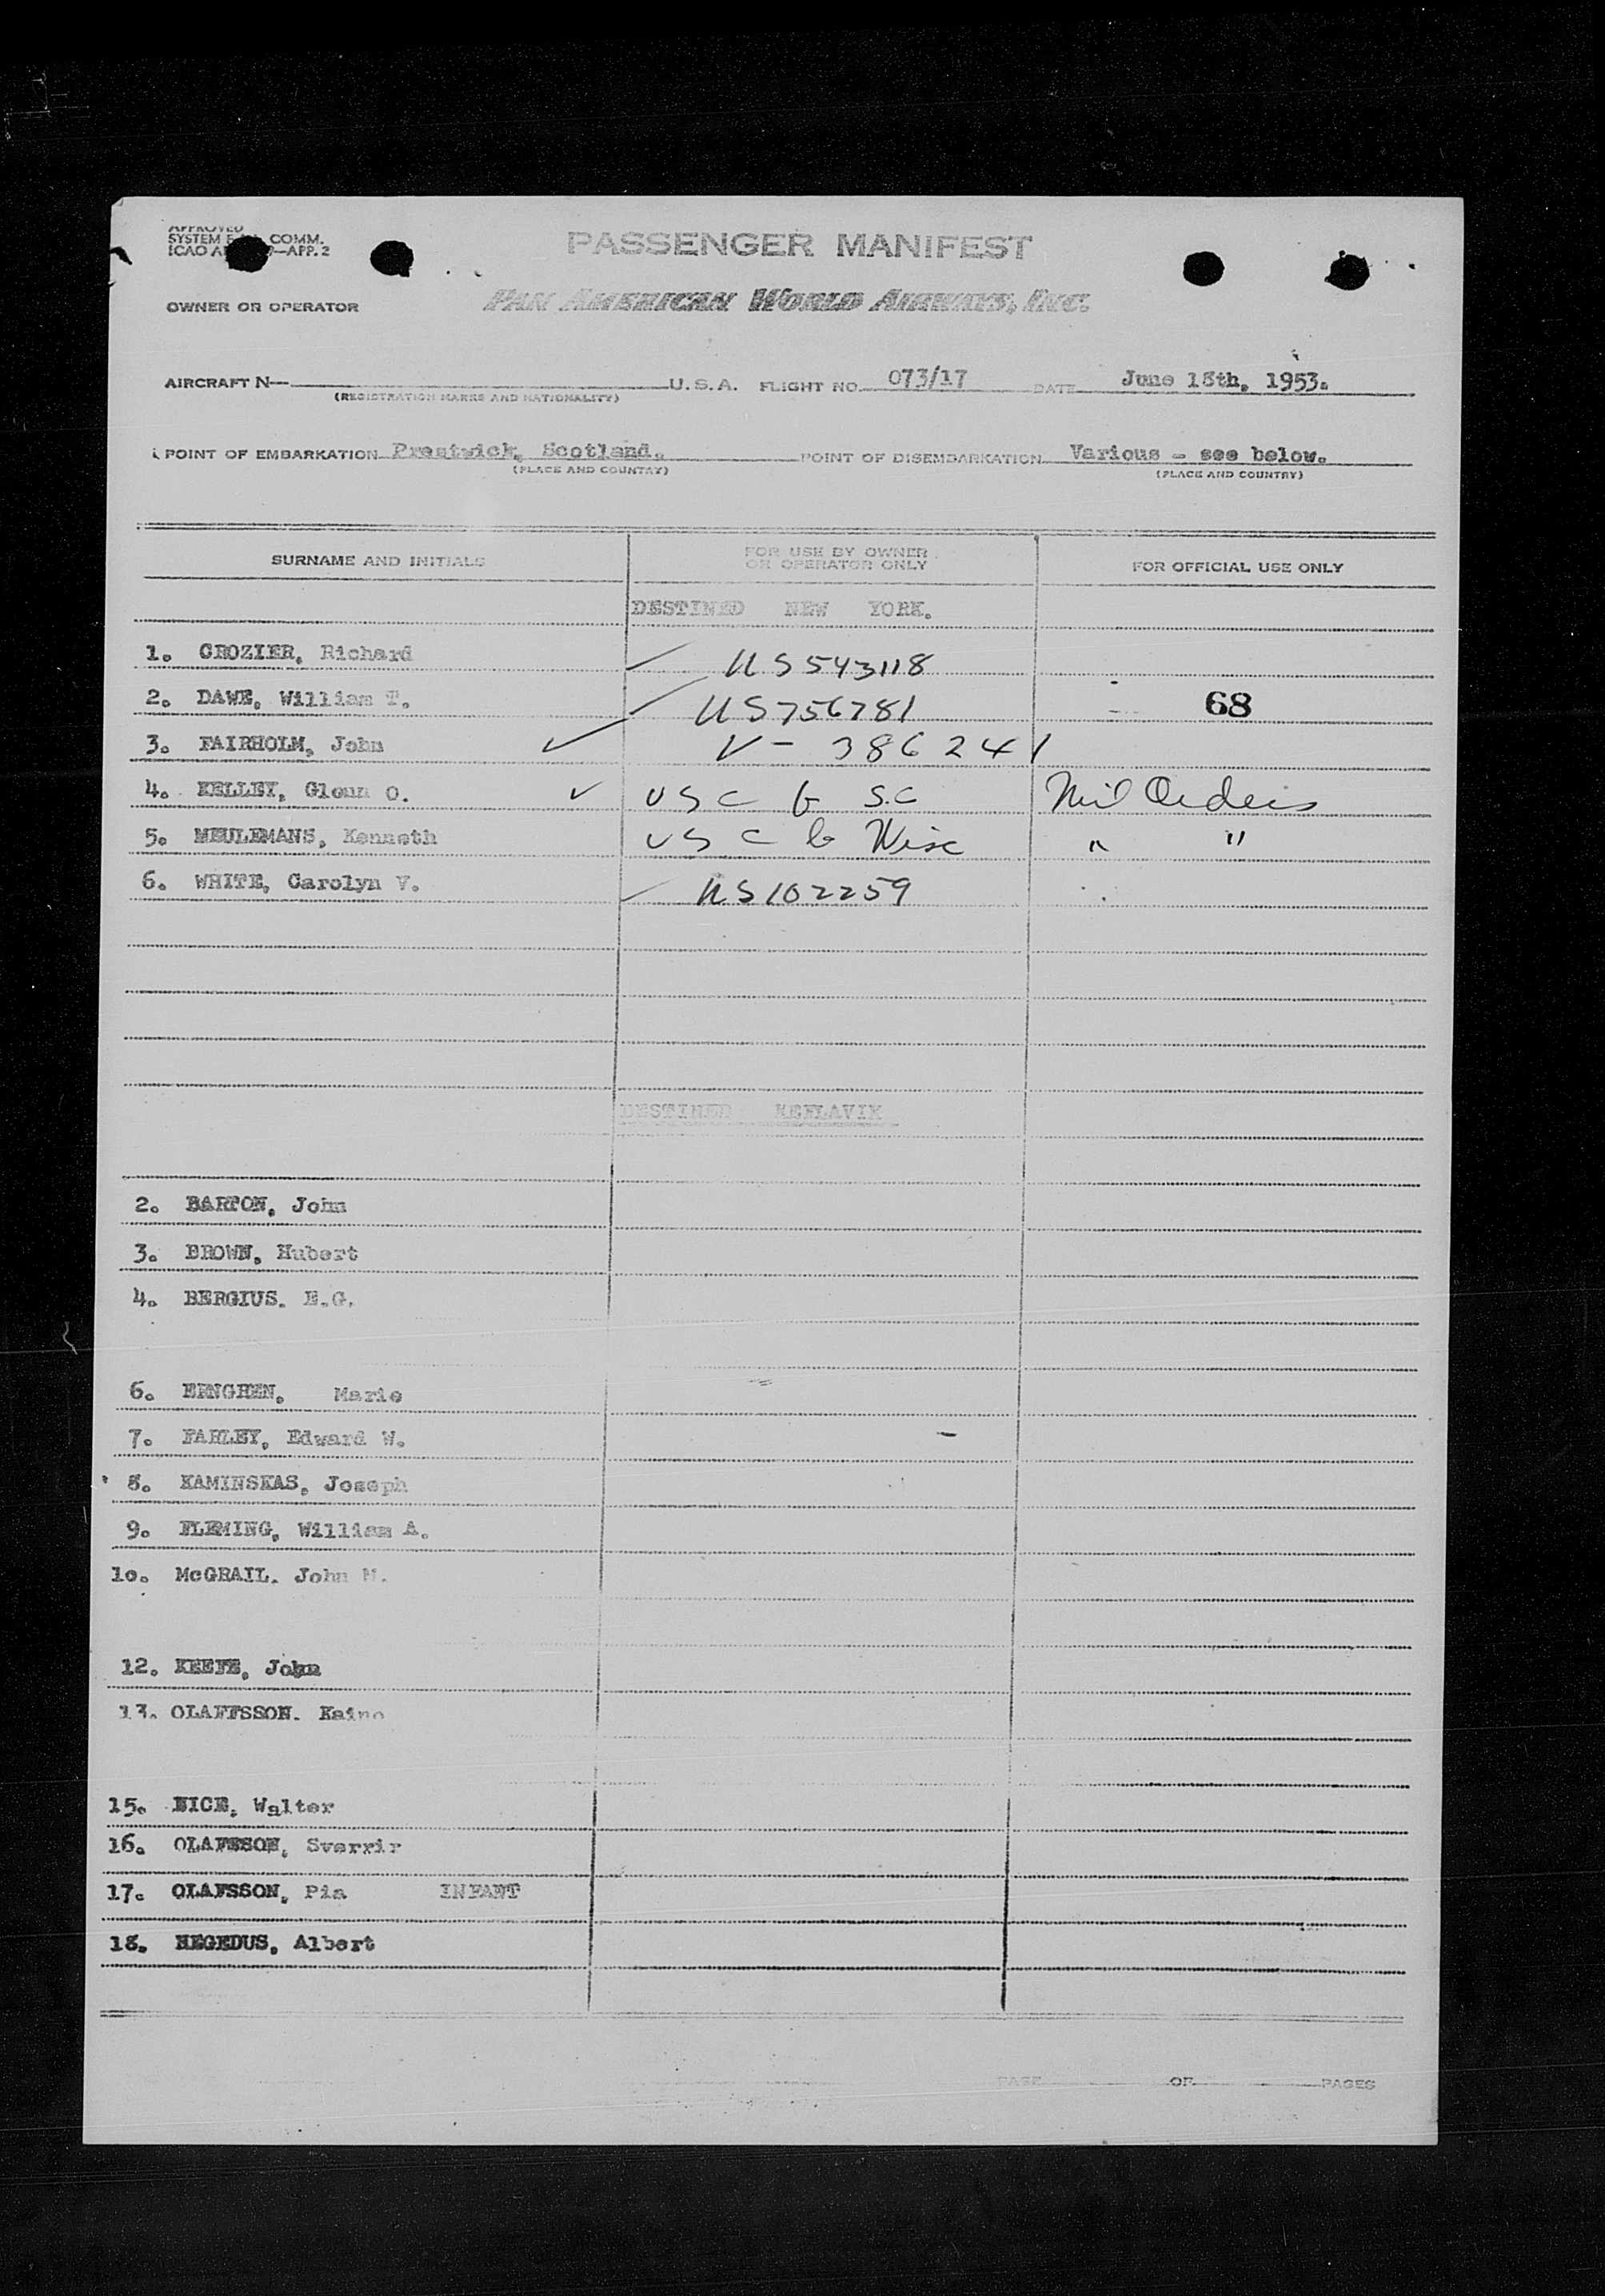 APPROVED
SYSTEM COMM.
ICAO —APP. 2
PASSENGER MANIFEST
OWNER OR OPERATOR PAN AMERICAN WORLD AIRWAYS, INC.
AIRCRAFT N— U.S.A. FLIGHT NO. 073/17 DATE June 18th, 1953.
(REGISTRATION MARKS AND NATIONALITY)
POINT OF EMBARKATION Prestwick, Scotland. POINT OF DISEMBARKATION Various - see below.
(PLACE AND COUNTRY) (PLACE AND COUNTRY)
SURNAME AND INITIALS FOR USE BY OWNER OR OPERATOR ONLY FOR OFFICIAL USE ONLY
DESTINED NEW YORK.
1. CROZIER, Richard US 543118
2. DAWE, William T. US 756781 68
3. FAIRHOLM, John V- 386241
4. KELLEY, Glenn O. USC b S.C Mil Orders
5. MEULEMANS, Kenneth USC b Wisc " "
6. WHITE, Carolyn V. US 102259
DESTINED KEFLAVIK
2. BARTON, John
3. BROWN, Hubert
4. BERGIUS. E.G.
6. Marie
7. FARLEY, Edward W.
8. KAMINSKAS, Joseph
9. FLEMING, William A.
10. McGRAIL. John M.
12. KEEFE, John
13. OLAFFSSON. Kaino
15. Walter
16. OLAFSSON, Sverrir
17. OLAFSSON, Pia INFANT
18. HEGEDUS, Albert
PAGE OF PAGES